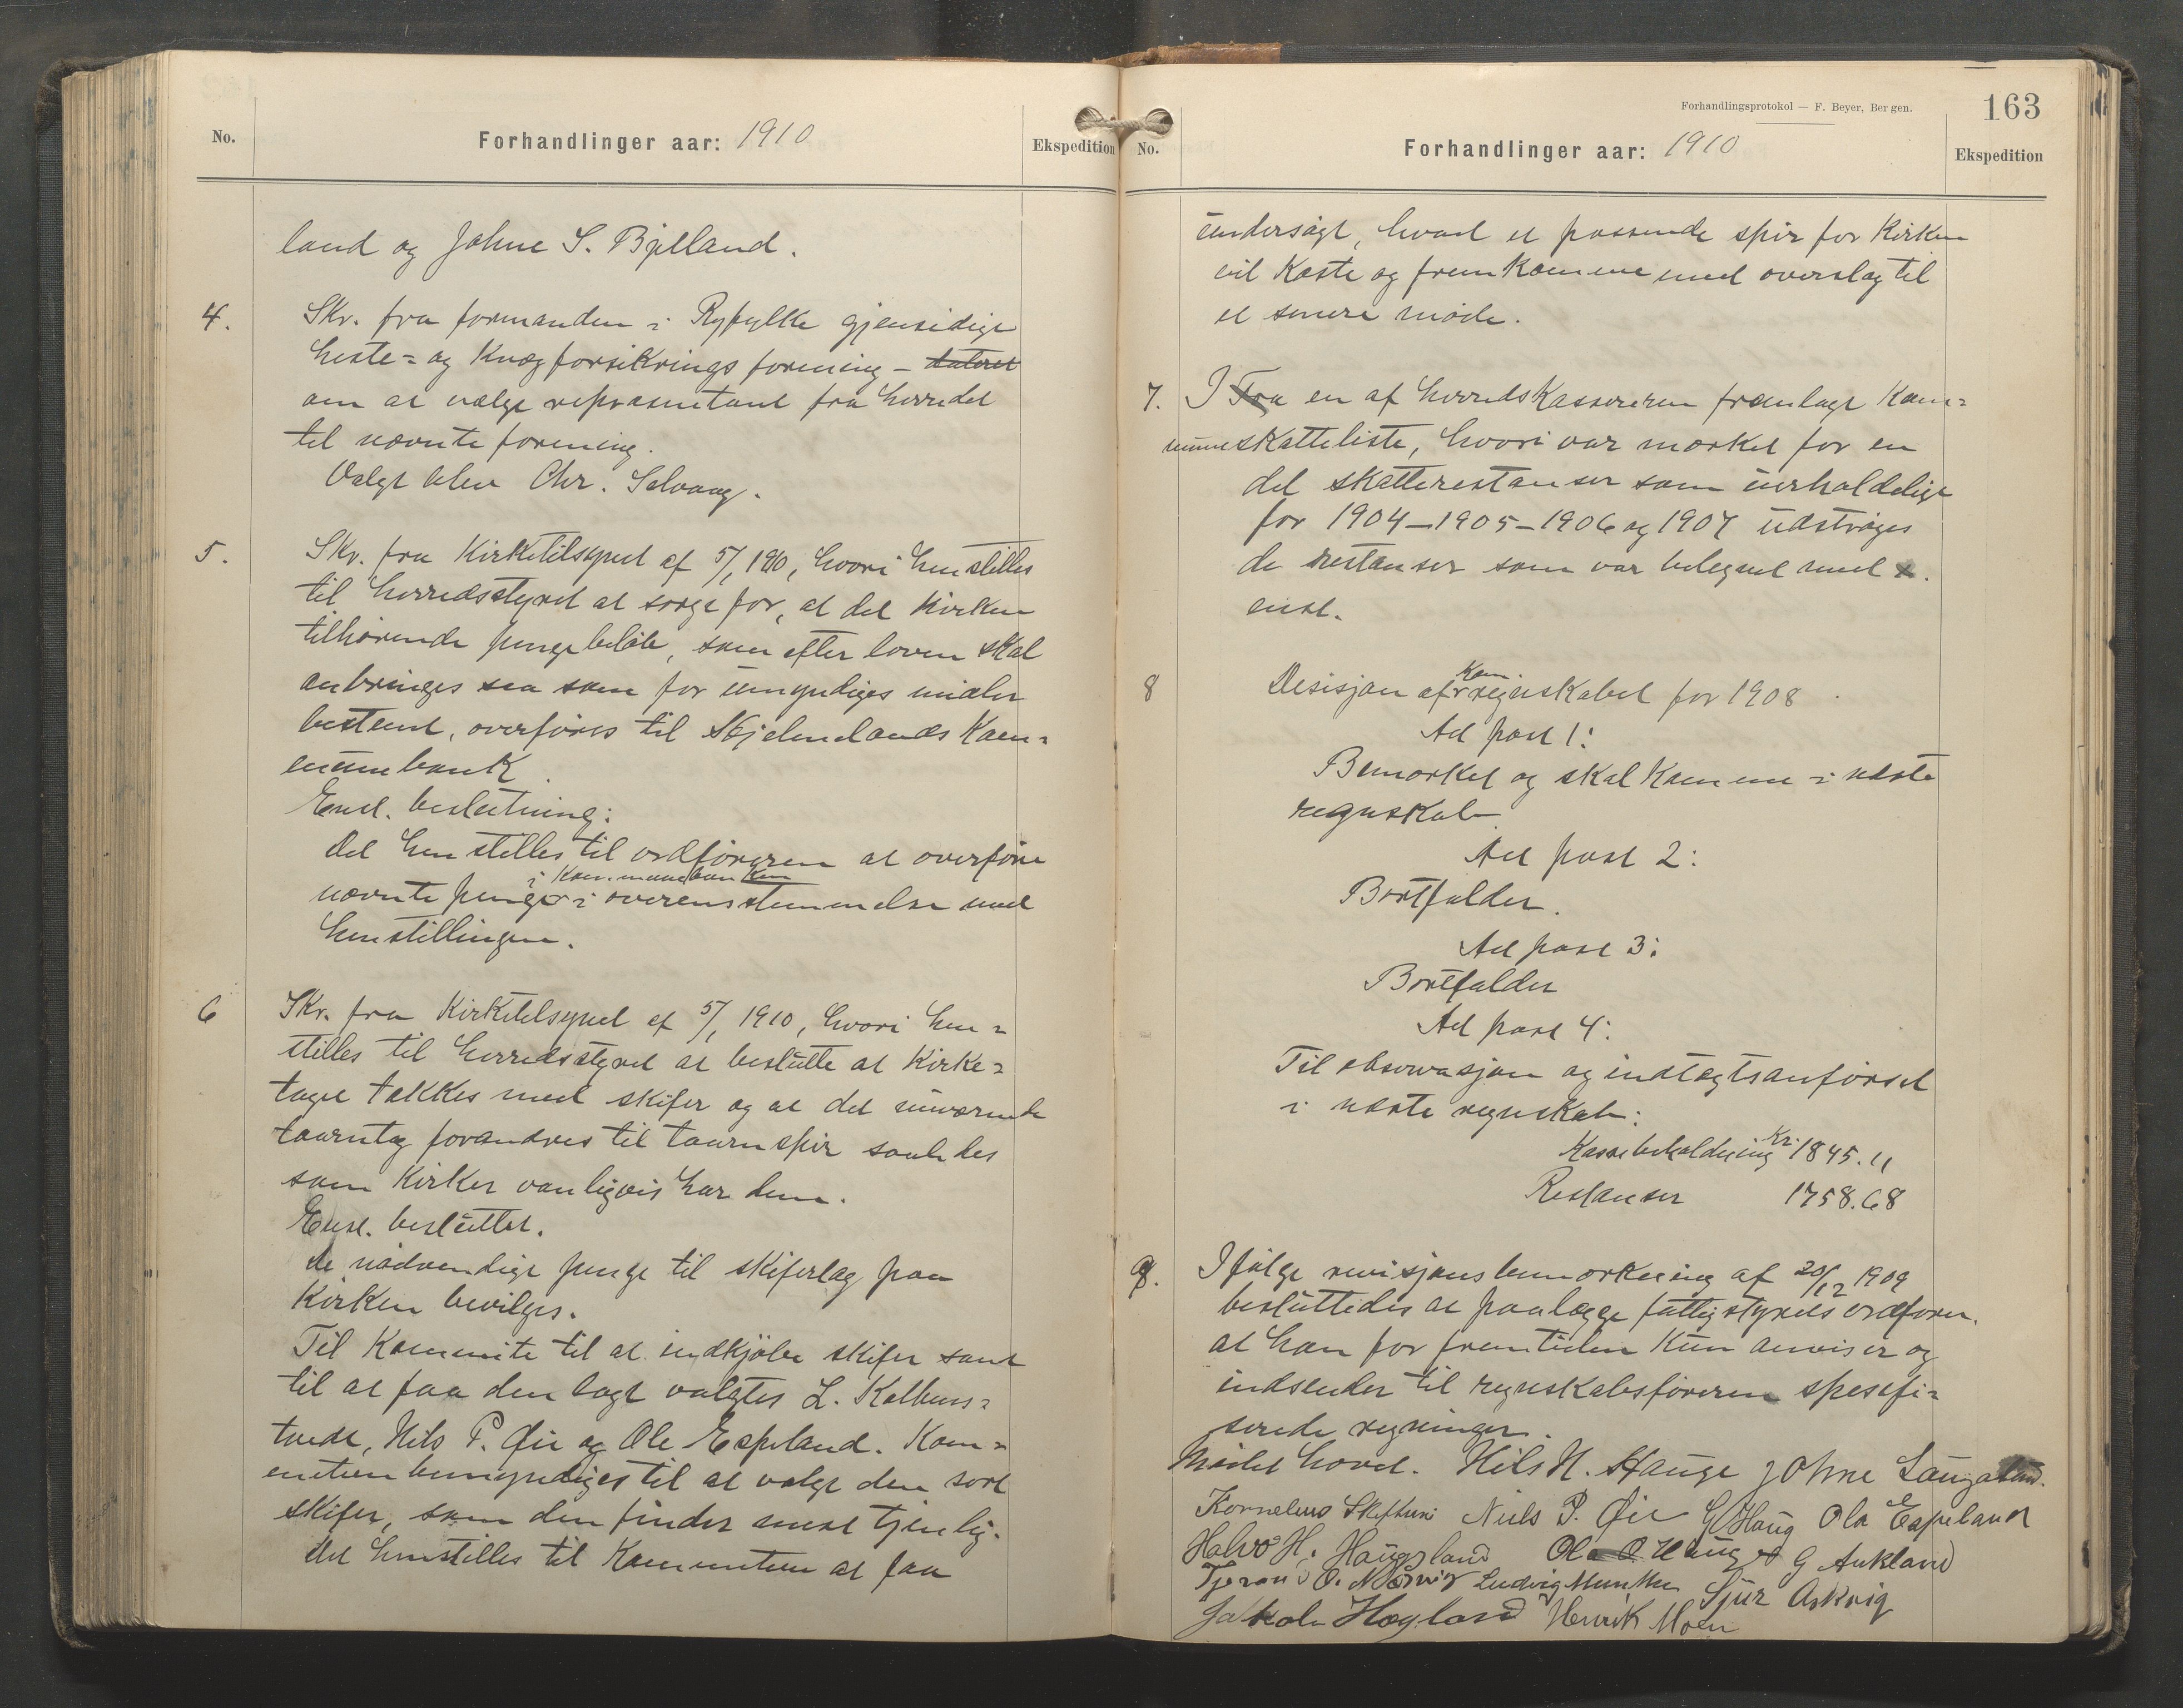 No.
Forhandlinger aar: 1910
Ekspedition
land og Johne S. Bjelland.
4.
Skv. fra formanden i Ryfylke gjensidige
heste= og kvægforsikrings forening - dateret
om at vælge repræsentant fra herredet
til nævnte forening.
Valgt blev Chr. Selvaag.
5.
Skv. fra Kirketilsynet af 5/1 1910, hvori henstilles
til herredsstyret at sørge for, at det kirken
tilhørende pengebeløb, som efter loven skal
anbringes saa som for umyndiges midler
bestemt, overføres til Skjelmelands Kom=
munebank.
Enst. beslutning:
Det henstilles til ordføreren at overføre
i Kommunebanken
nævnte penger i overensstemmelse med
henstillingen.
6
Skv. fra Kirketilsynet af 5/1 1910, hvori hen=
stilles til herredsstyret at beslutte at Kirke=
taget tækkes med skifer og at det nuværende
taarntag forandres til taarnspir saaledes
som Kirker vanligvis har dem.
Enst. besluttet.
De nødvendige penge til skifertag paa
Kirken bevilges.
Til Kommite til at indkjøbe skifer samt
til at faa den lagt valgtes L. Kalhus=
tvedt, Nils P. Øie og Ole Espeland. Kom=
miteen bemyndiges til at vælge den sort
skifer, som den finder mest tjenlig.
Det henstilles til Kommiteen at faa
Forhandlingsprotokol — F. Beyer, Bergen.
163
No.
Forhandlinger aar: 1910
Ekspedition
undersøgt, hvad et passende spir for Kirken
vil koste og fremkomme med overslag til
et senere møde.
7.
I Fra en af herredskassereren fremlagt Kom=
muneskatteliste, hvori var mærket for en
del skatterestanser som uerholdelige
for 1904-1905-1906 og 1907 udstrøges
de restanser som var betegnet med x.
enst.
8
Desisjon af Kom. regnskabet for 1908.
Ad post 1:
Bemærket og skal komme i næste
regnskab
Ad post 2:
Bortfalder.
Ad post 3:
Bortfalder
Ad post 4:
Til observasjon og indtægtsanførsel
i næste regnskab:
Kassebeholdning Kr. 1845.11
Restanser 1758.68
9.
Ifølge revisjonsbemærkning af 20/12 1909
besluttedes at paalægge fattigstyrets ordfører.
at han for fremtiden kun anviser og
indsender til regnskabsføreren spesifi=
serede regninger.
Mødet hævet. Nils N. Hauge Johne Laugaland.
Kornelius Skeftuni Niels P. Øie G Haug Ola Espeland
Halvo H. Haugsland Ola O Hauge G Aukland
Tjeran O. Norvig Ludvig Munthe Sjur Askvig
Jakob Høyland Henrik Moen